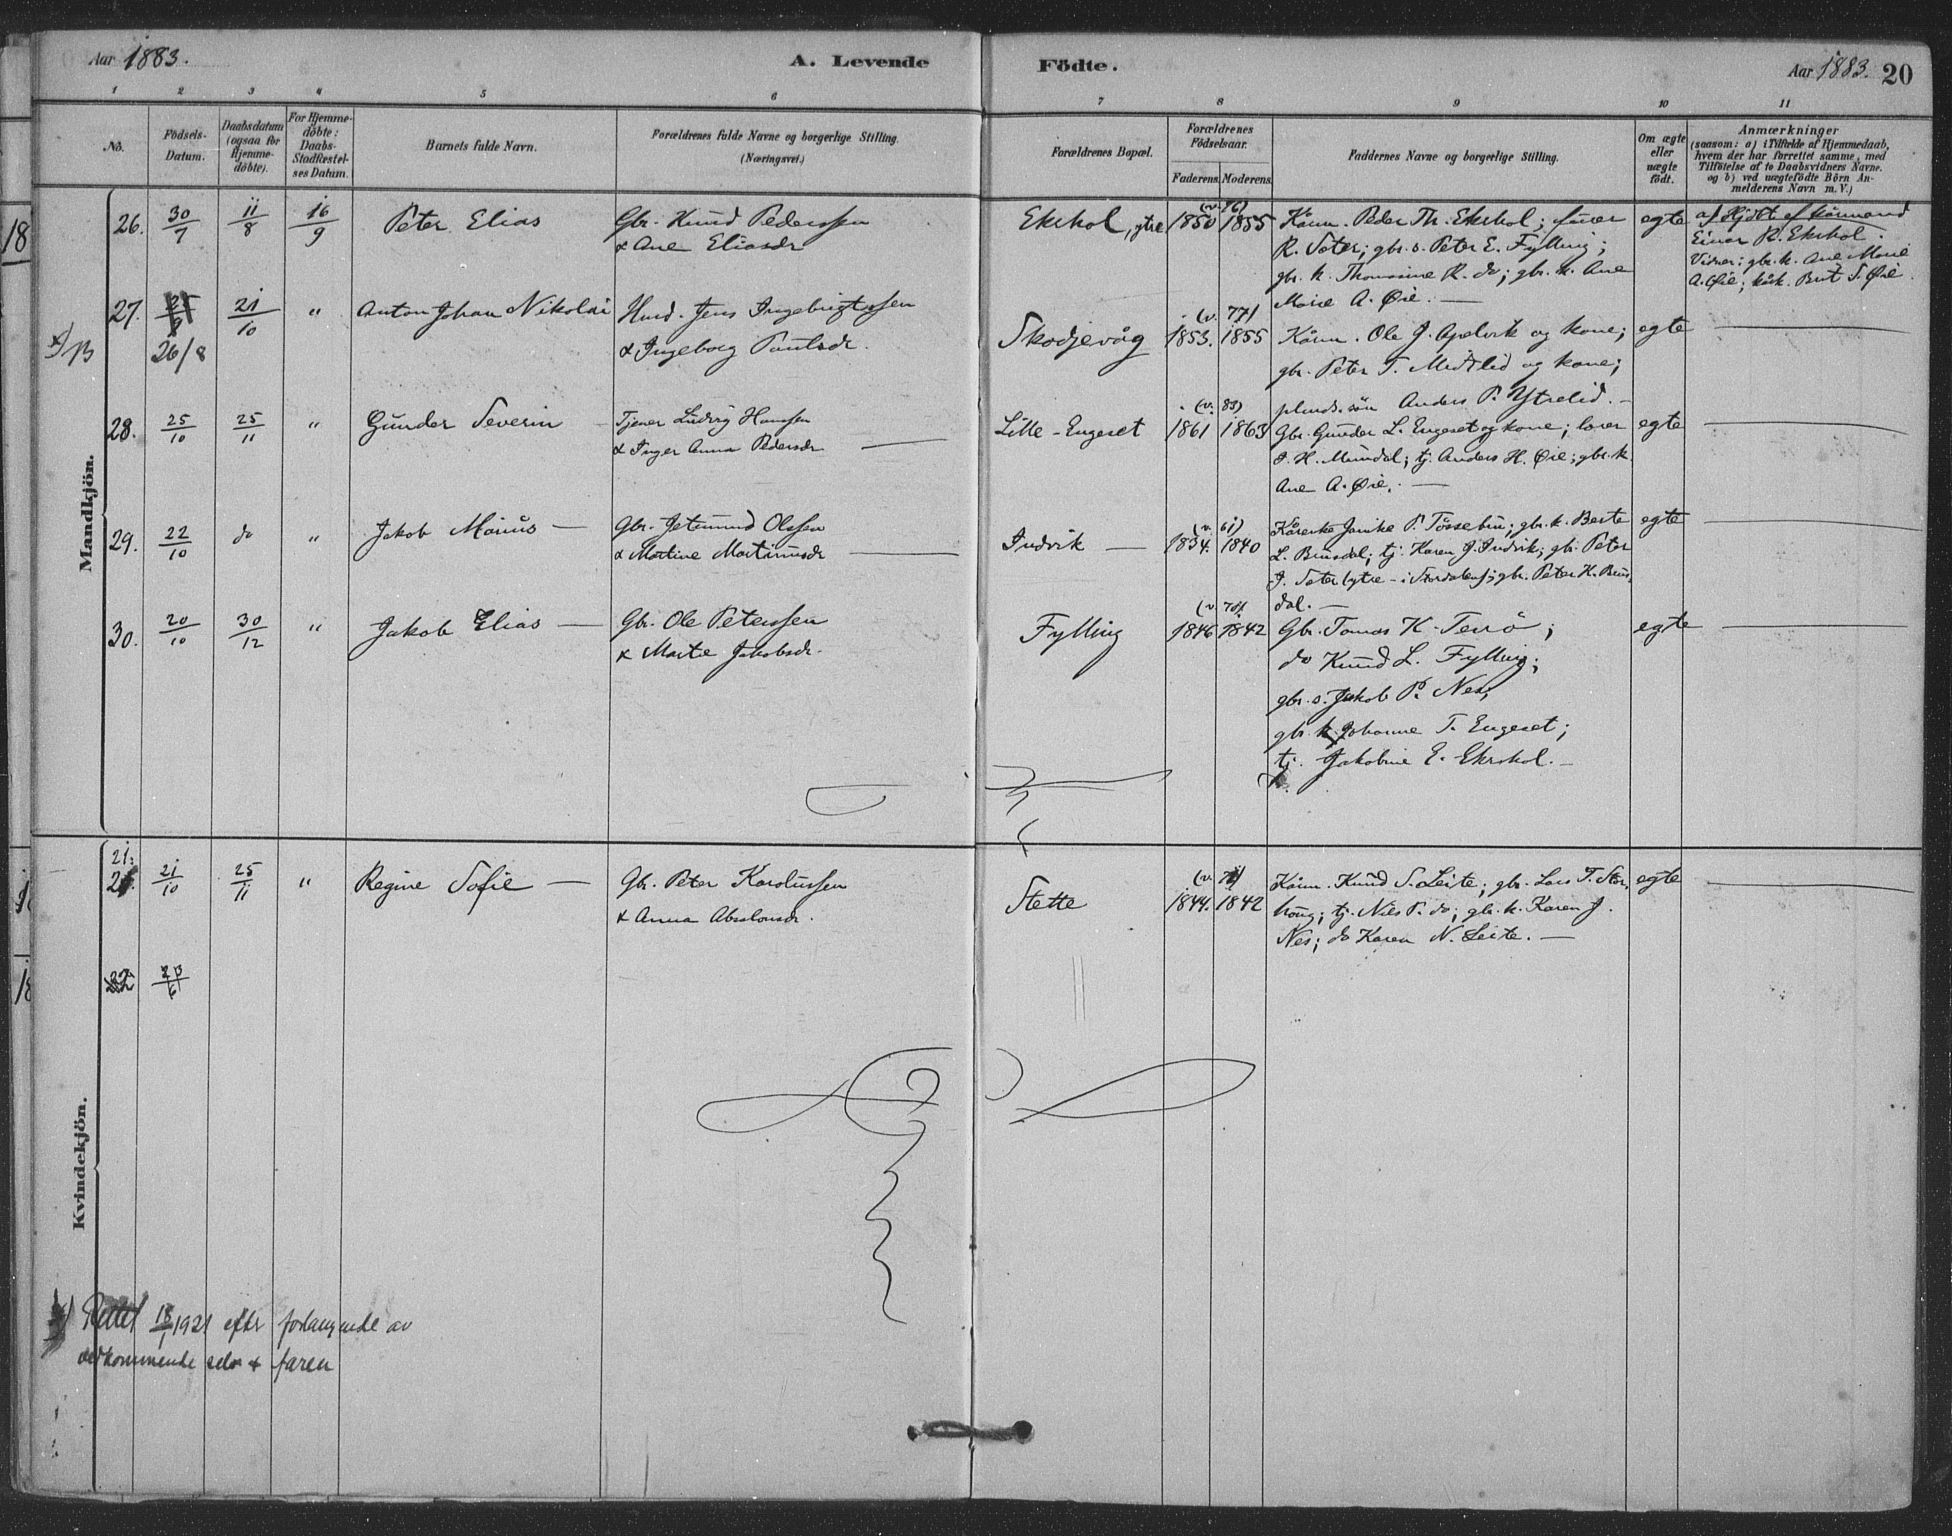 Aar 1883.
A. Levende Födte.
Aar 1883. 20
1 2 3 4 5 6 7 8 9 10 11
No.
Födsels-Datum.
Daabsdatum (ogsaa for Hjemme-döbte).
For Hjemme-döbte: Daabs-Stadfæstel-ses Datum.
Barnets fulde Navn.
Forældrenes fulde Navne og borgerlige Stilling. (Næringsvei.)
Forældrenes Bopæl.
Forældrenes Födselsaar.
Faderens. Moderens.
Faddernes Navne og borgerlige Stilling.
Om ægte eller uægte födt.
Anmærkninger
(saasom: a) i Tilfælde af Hjemmedaab, hvem der har forrettet samme, med Tilföielse af to Daabsvidners Navne. og b) ved uægtefödte Börn An-melderens Navn m. V.)
Mandkjön.
26. 30/7 11/8 16/9 Peter Elias
Gbr. Knud Pederssen
& Ane Eliasdr
Ekshol, ytre 1850 1855
Kånm. Peder Th. Ekshol;
R. Sater; gbr. s. Peter E. Fylling;
gbr. k. Thomasine R. do; gbr. k. Ane
Marie A. Øie. —
egte
Einar R. Ekshol.
Vidner: gbr. k. Ane Marie
A. Øie; Brit S. Øie.
27. 26/8 21/10 " Anton Johan Nikolai
Husd. Jens Ingebrigtssen
& Ingeborg Paulsdr.
Skodjevåg (v. 77) 1853. 1855
Kånm. Ole J. Apelvik og kone;
gbr. Peter T. Medslid og kone;
plads. søn Anders P. Ytrelid. —
egte
28. 25/10 25/11 " Gunder Severin
Tjener Ludvig Hansen
& Inger Anna Pedersdr
Lille-Engeset (v. 83) 1861 1863
Gbr. Gunder L. Engeset og kone; lærer
J. H. Mundal; tj. Anders H. Øie; gbr. k.
Ane A. Øie. —
egte
29. 22/10 do " Jakob Marius —
Gbr. Jetmund Olssen
& Martine Martinusdr
Indvik — (v. 61) 1834. 1840
Janike P. Tøssebru; gbr. k. Berte
L. Brusdal; tj. Karen J. Indvik; gbr. Peter
J. Sater (ytre – i Stordalen); gbr. Peter K. Brus-
dal. —
egte
30. 20/10 30/12 " Jakob Elias —
Gbr. Ole Peterssen
& Marte Jakobsdr.
Fylling 1846 1842
Gbr. Tomas K. Terrø;
do Knud L. Fylling;
gbr. s. Jakob P. Nes;
gbr. k. Johanne T. Engeset;
tj. Jakobine E. Ekshol. —
egte
Kvindekjön.
21. 21/10 25/11 " Regine Sofie —
Gbr. Peter Karolussen
& Anna Absalonsdr.
Stette 1844. 1842
Kånm. Knud S. Leite; gbr. Lars T. Stor-
houg; tj. Nils P. do; gbr. k. Karen J.
Nes; do Karen N. Leite. —
egte
22
Rettet 18/1 1921 efter forlangende av
vedkommende selv & faren